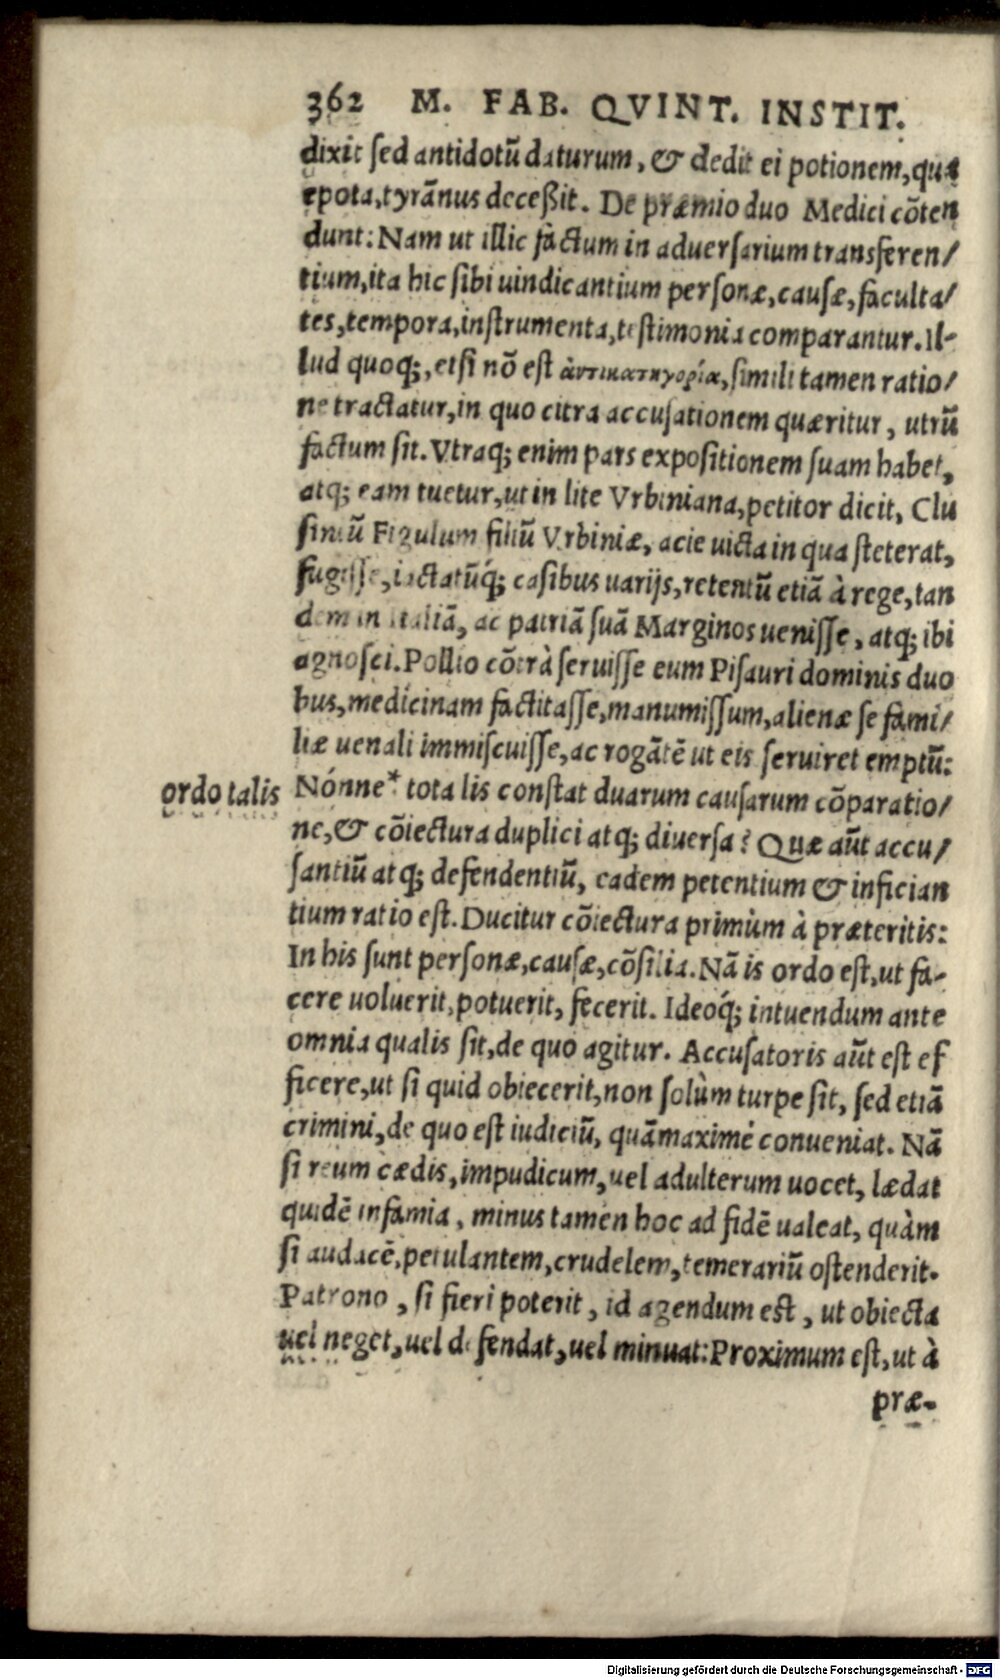 362 M. FAB. QVINT. INSTIT.
dixit sed antidotũ daturum, & dedit ei potionem, qua
epota, tyrãnus deceßit. De præmio duo Medici cõten
dunt: Nam ut illic factum in aduersarium transferen/
tium, ita hic sibi uindicantium personæ, causæ, faculta/
tes, tempora, instrumenta, testimonia comparantur. Il-
lud quoq;, etsi nõ est ἀντικατηγορία, simili tamen ratio/
ne tractatur, in quo citra accusationem quæritur, utrũ
factum sit. Vtraq; enim pars expositionem suam habet,
atq; eam tuetur, ut in lite Vrbiniana, petitor dicit, Clu
siniũ Figulum filiũ Vrbiniæ, acie uicta in qua steterat,
fugisse, iactatũq́; casibus uarijs, retentũ etiã à rege, tan
dem in Italiã, ac patriã suã Marginos uenisse, atq; ibi
agnosci. Pollio cõtrà seruisse eum Pisauri dominis duo
bus, medicinam factitasse, manumissum, alienæ se fami/
liæ uenali immiscuisse, ac rogãtẽ ut eis seruiret emptũ:
ordo talis
Nónne* tota lis constat duarum causarum cõparatio/
ne, & cõiectura duplici atq; diuersa? Quæ aũt accu/
santiũ atq; defendentiũ, eadem petentium & infician
tium ratio est. Ducitur cõiectura primùm à præteritis:
In his sunt personæ, causæ, cõsilia. Nã is ordo est, ut fa-
cere uoluerit, potuerit, fecerit. Ideoq́; intuendum ante
omnia qualis sit, de quo agitur. Accusatoris aũt est ef
ficere, ut si quid obiecerit, non solùm turpe sit, sed etiã
crimini, de quo est iudiciũ, quãmaximè conueniat. Nã
si reum cædis, impudicum, uel adulterum uocet, lædat
quidẽ infamia, minus tamen hoc ad fidẽ ualeat, quàm
si audacẽ, petulantem, crudelem, temerariũ ostenderit.
Patrono, si fieri poterit, id agendum est, ut obiecta
uel neget, uel defendat, uel minuat: Proximum est, ut à
præ-
Digitalisierung gefördert durch die Deutsche Forschungsgemeinschaft - DFG